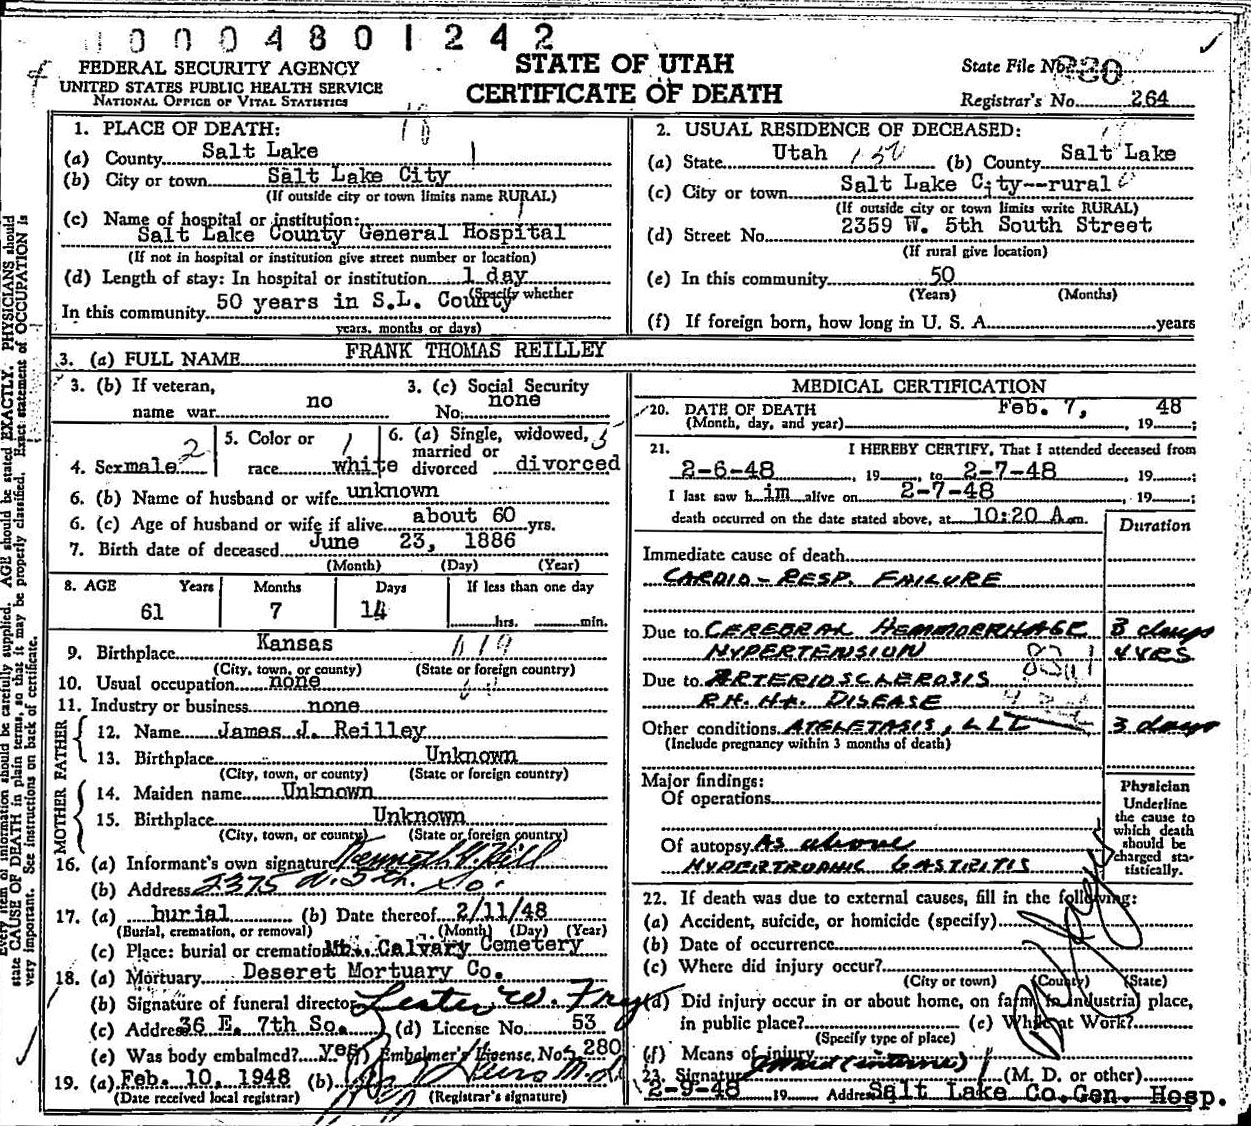 0004801242
FEDERAL SECURITY AGENCY
UNITED STATES PUBLIC HEALTH SERVICE
NATIONAL OFFICE OF VITAL STATISTICS
STATE OF UTAH
CERTIFICATE OF DEATH
State File No. 230
Registrar's No. 264
1. PLACE OF DEATH:
(a) County Salt Lake
(b) City or town Salt Lake City
(If outside city or town limits name RURAL)
(c) Name of hospital or institution:
Salt Lake County General Hospital
(If not in hospital or institution give street number or location)
(d) Length of stay: In hospital or institution 1 day
(Specify whether
In this community 50 years in S.L. County
years, months or days)
2. USUAL RESIDENCE OF DECEASED:
(a) State Utah (b) County Salt Lake
(c) City or town Salt Lake City--rural
(If outside city or town limits write RURAL)
(d) Street No. 2359 W. 5th South Street
(If rural give location)
(e) In this community 50
(Years) (Months)
(f) If foreign born, how long in U. S. A. years
3. (a) FULL NAME FRANK THOMAS REILLEY
3. (b) If veteran, name war no
3. (c) Social Security No. none
4. Sex male 2
5. Color or race white 1
6. (a) Single, widowed, married or divorced divorced
6. (b) Name of husband or wife unknown
6. (c) Age of husband or wife if alive about 60 yrs.
7. Birth date of deceased June 23, 1886
(Month) (Day) (Year)
8. AGE Years Months Days If less than one day
61 7 14 hrs. min.
9. Birthplace Kansas
(City, town, or county) (State or foreign country)
10. Usual occupation none
11. Industry or business none
FATHER
12. Name James J. Reilley
13. Birthplace Unknown
(City, town, or county) (State or foreign country)
MOTHER
14. Maiden name Unknown
15. Birthplace Unknown
(City, town, or county) (State or foreign country)
16. (a) Informant's own signature Kenneth V. Hill
(b) Address 2375 W. 5th So.
17. (a) burial (b) Date thereof 2/11/48
(Burial, cremation, or removal) (Month) (Day) (Year)
(c) Place: burial or cremation Mt. Calvary Cemetery
18. (a) Mortuary Deseret Mortuary Co.
(b) Signature of funeral director Lester W. Frye
(c) Address 36 E. 7th So. (d) License No. 53
(e) Was body embalmed? yes (f) Embalmer's License, No. 280
19. (a) Feb. 10, 1948 (b)
(Date received local registrar) (Registrar's signature)
MEDICAL CERTIFICATION
20. DATE OF DEATH Feb. 7, 48
(Month, day, and year) , 19 ;
21. I HEREBY CERTIFY, That I attended deceased from
2-6-48 , 19 , to 2-7-48 , 19 ;
I last saw him alive on 2-7-48 , 19 ;
death occurred on the date stated above, at 10:20 A.m.
Duration
Immediate cause of death
CARDIO-RESP. FAILURE
Due to CEREBRAL HEMMORRHAGE 3 days
HYPERTENSION 4 YRS
Due to ARTERIOSCLEROSIS
RH. Ht. DISEASE
Other conditions ATELETASIS, LLL 3 days
(Include pregnancy within 3 months of death)
Major findings:
Of operations
Of autopsy As above
HYPERTROPHIC GASTRITIS
Physician
Underline
the cause to
which death
should be
charged sta-
tistically.
22. If death was due to external causes, fill in the following:
(a) Accident, suicide, or homicide (specify)
(b) Date of occurrence
(c) Where did injury occur?
(City or town) (County) (State)
(d) Did injury occur in or about home, on farm, in industrial place,
in public place? (e) While at Work?
(Specify type of place)
(f) Means of injury
23. Signature (interne) (M. D. or other)
2-9-48 19 Address Salt Lake Co.Gen. Hosp.
Every item of information should be carefully supplied. AGE should be stated EXACTLY. PHYSICIANS should
state CAUSE OF DEATH in plain terms, so that it may be properly classified. Exact statement of OCCUPATION is
very important. See instructions on back of certificate.